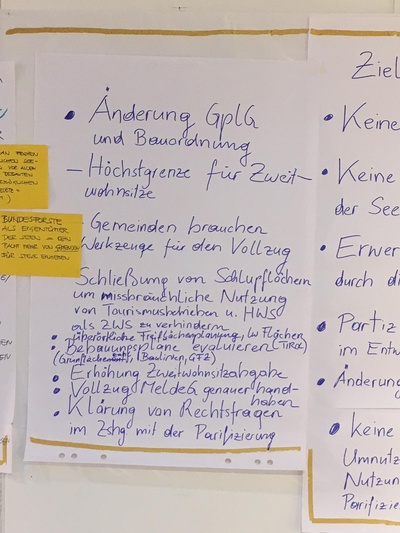 • Änderung GplG
und Bauordnung
– Höchstgrenze für Zweit-
wohnsitze
Gemeinden brauchen
Werkzeuge für den Vollzug
Schließung von Schlupflöchern
um missbräuchliche Nutzung
von Tourismusbetrieben u. HWS
als ZWS zu verhindern
• überörtliche Freiflächenplanung, lw Flächen
• Bebauungspläne evaluieren (TIROL)
Baulinien, GFZ)
• Erhöhung Zweitwohnsitzabgabe
• Vollzug MeldeG genauer hand-
haben
• Klärung von Rechtsfragen
im Zshg mit der Parifizierung
BUNDESFORSTE
ALS EIGENTÜMER
DER SEEN
Ziel
• Keine
• Keine
der See
• Erwer
durch di
• Partiz
im Entw
• Änderung
• keine
Umnutz
Nutzun
Parifizie